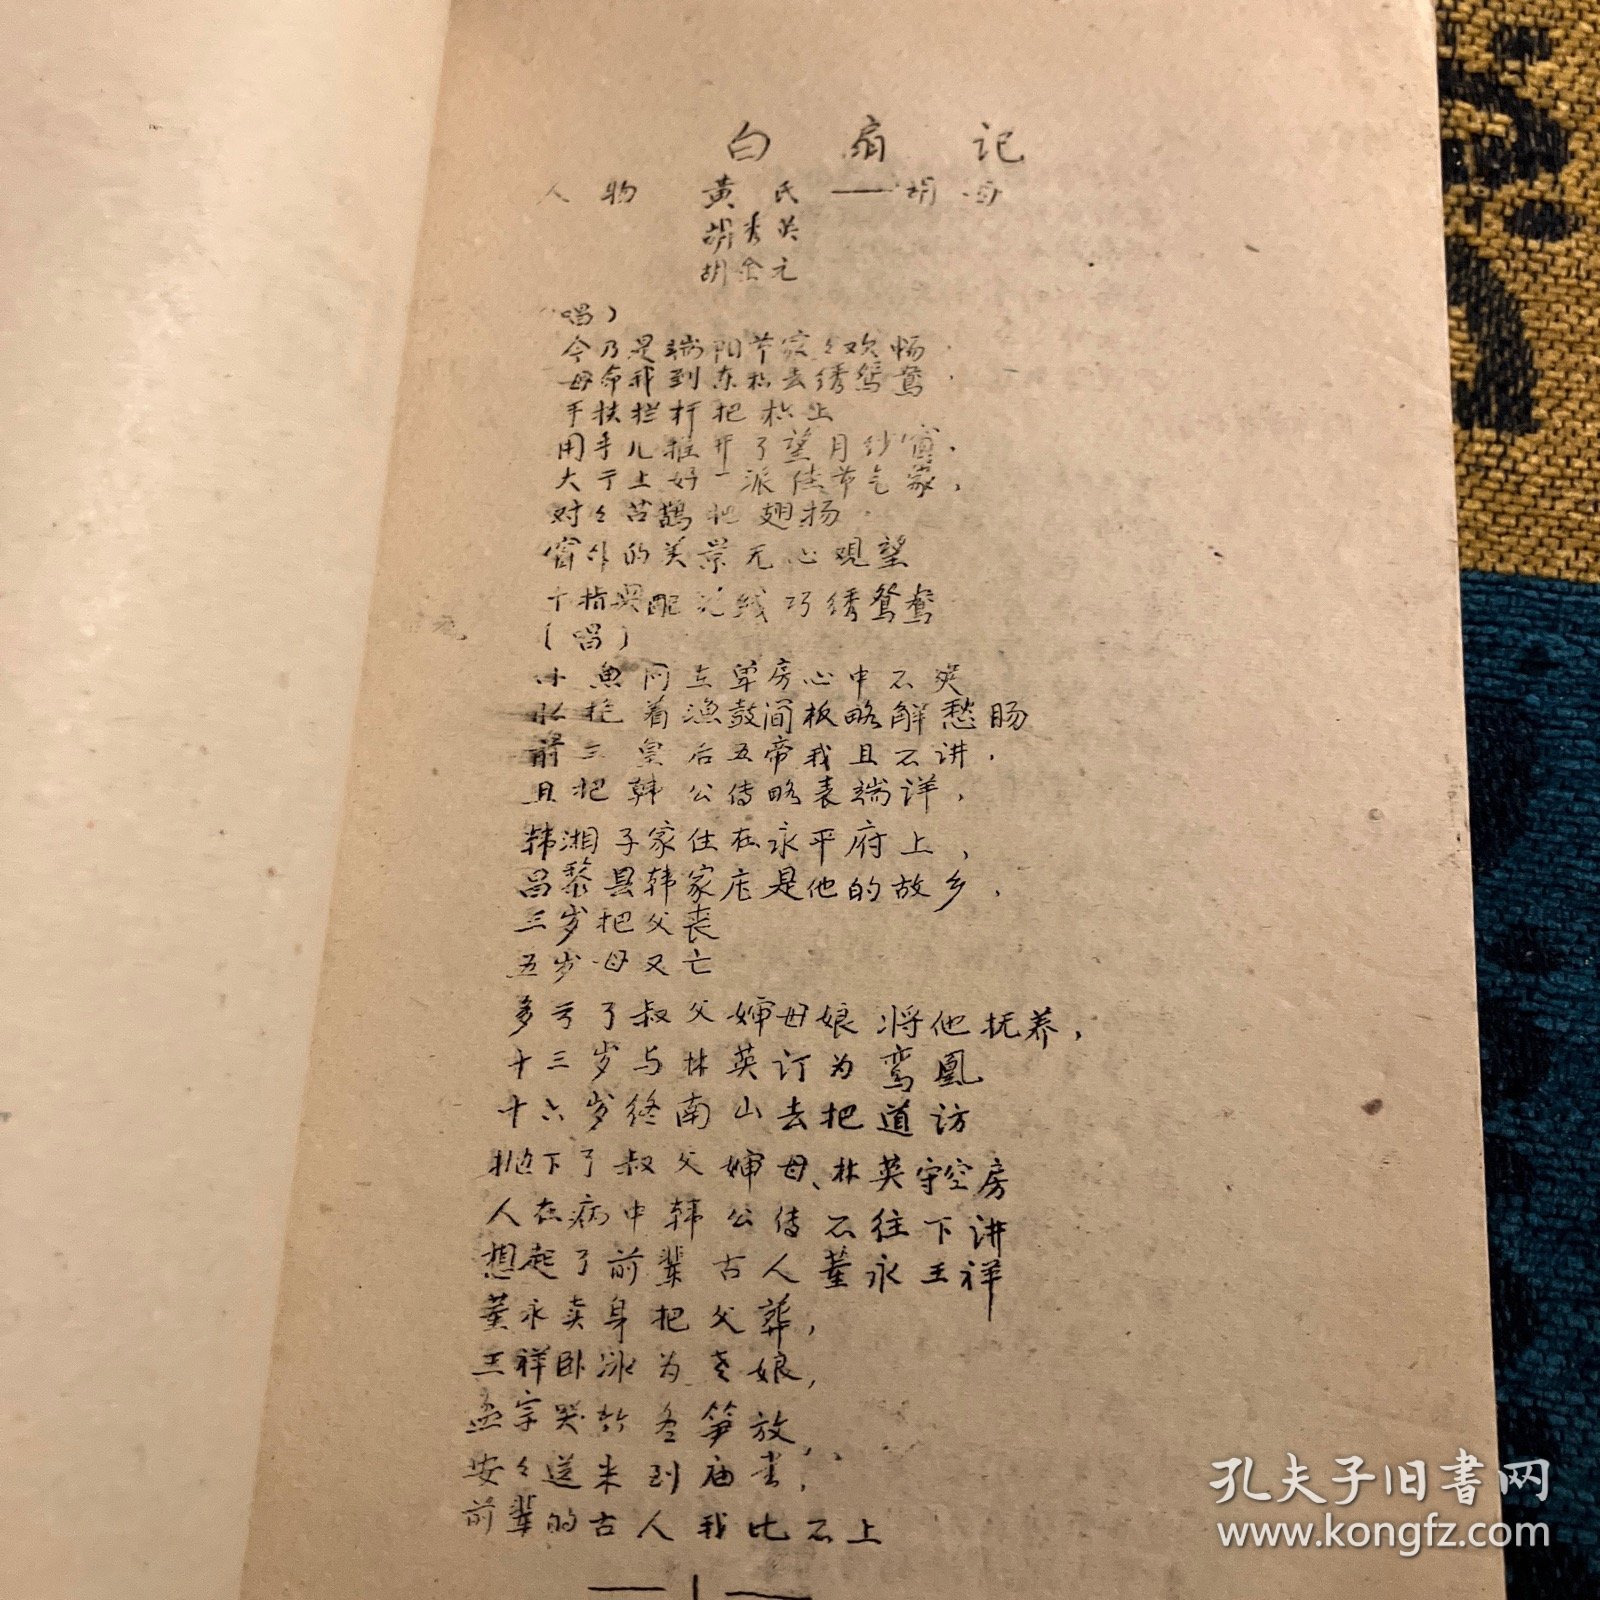 白扇记
人物 黄氏——胡母
胡秀英
胡金元
（唱）
今乃是端阳节家々欢畅.
母命我到东楼去绣鸳鸯.
手扶拦杆把楼上
用手儿推开了望月纱窗.
大厅上好一派佳节气象,
对々喜鹊把翅扬.
窗外的美景无心观望
十指与配花线巧绣鸳鸯
（唱）
小鱼网在单房心中不爽
怀抱着渔鼓简板略解愁肠
前三皇后五帝我且不讲.
且把韩公传略表端详,
韩湘子家住在永平府上,
昌黎县韩家庄是他的故乡.
三岁把父丧
五岁母又亡
多亏了叔父婶母娘将他抚养,
十三岁与林英订为鸾凰
十六岁终南山去把道访
抛下了叔父婶母、林英守空房
人在病中韩公传不往下讲
想起了前辈古人董永王祥
董永卖身把父葬,
王祥卧冰为老娘,
孟宗哭竹冬笋放,
安々送米到庙堂,
前辈的古人我比不上
—1—
孔夫子旧书网
www.kongfz.com